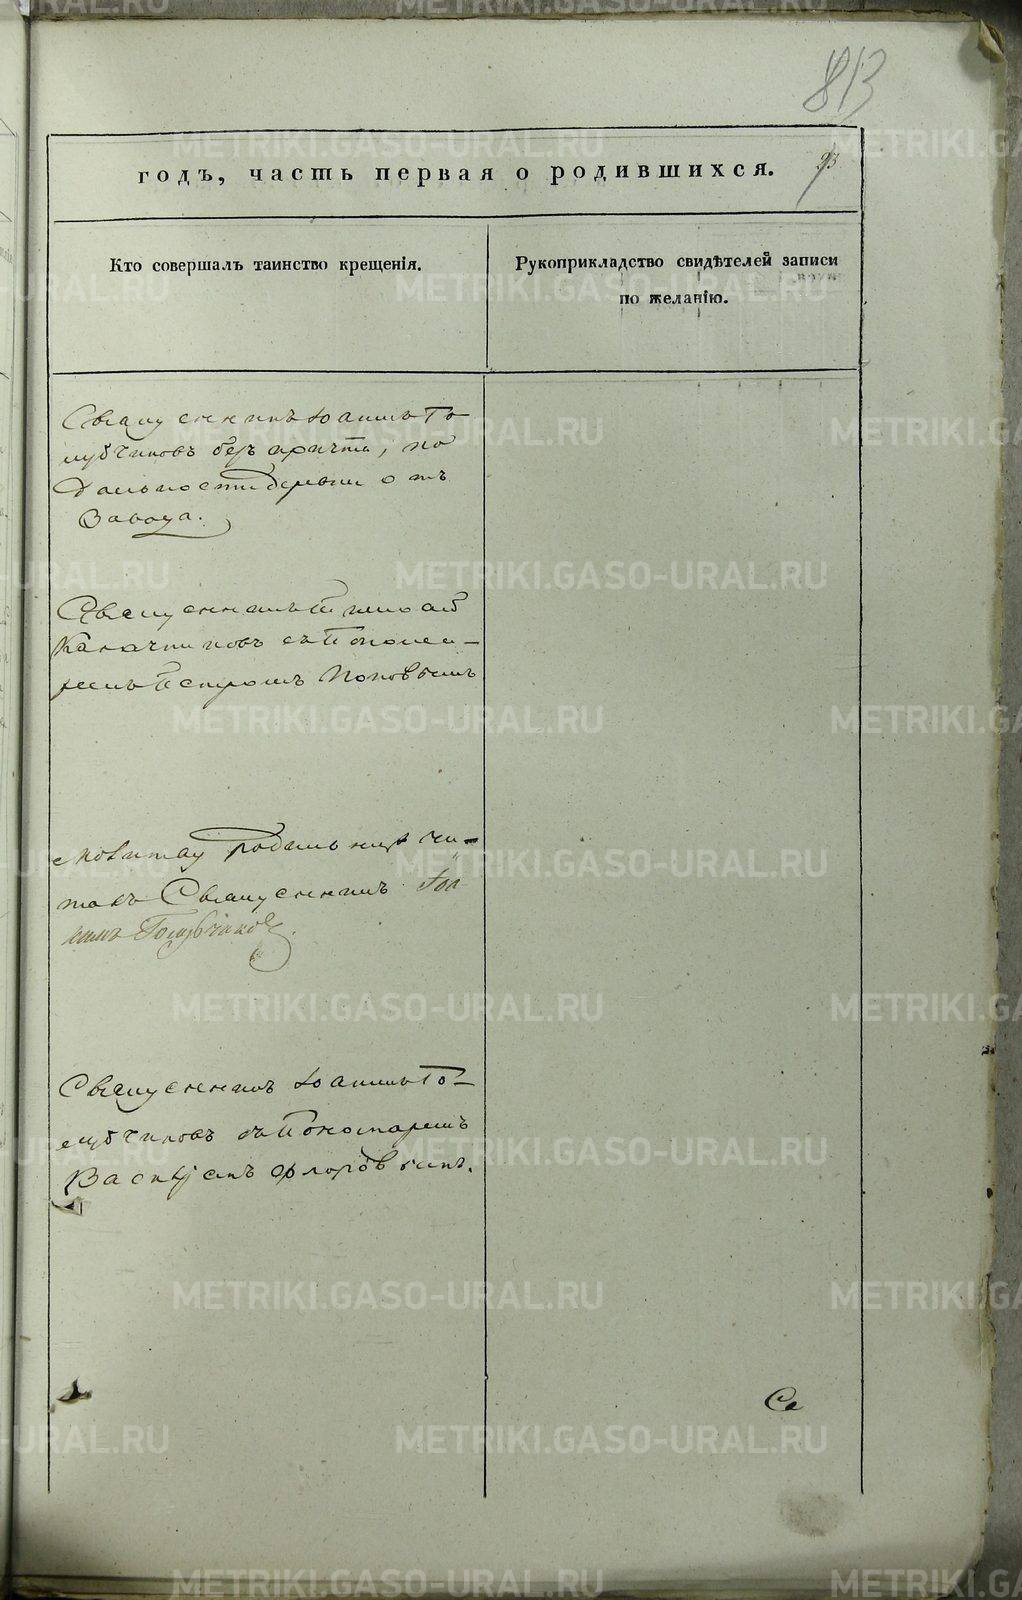 813
93
годъ, часть первая о родившихся.
Кто совершалъ таинство крещенія.
Рукоприкладство свидѣтелей записи
по желанію.
Священникъ Іоаннъ Го-
лубчиковъ безъ причта, по
дальности деревни отъ
Завода.
Священникъ
Калачниковъ съ Пономо-
ремъ Петромъ Поповымъ
молитву родильницѣ чи-
талъ Священникъ Іоа
ннъ Голубчиковъ.
Священникъ Іоаннъ Го-
лубчиковъ съ Пономаремъ
Флоровымъ.
Се
METRIKI.GASO-URAL.RU